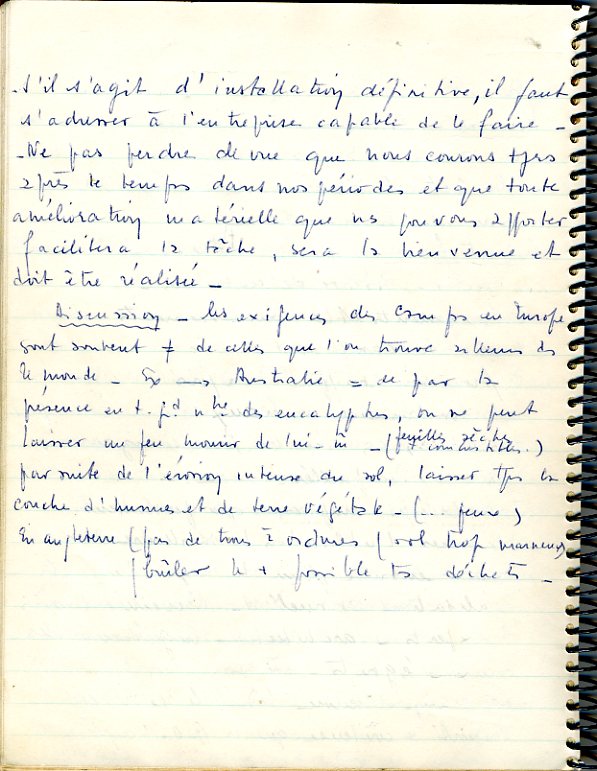 - S'il s'agit d'installation définitive, il faut
s'adresser à l'entreprise capable de le faire -
- Ne pas perdre de vue que nous courons tjrs
après le temps dans nos périodes et que toute
amélioration matérielle que ns pouvons apporter
facilitera la tâche, sera la bienvenue et
doit être réalisée -
Discussion - les exigences des camps en Europe
sont souvent ≠ de celles que l'on trouve ailleurs ds
le monde - Ex → Australie = de par la
présence en t. gd nbre des eucalyptes, on ne peut
laisser un feu mourir de lui-m - (feuilles sèches
+ combustibles.)
par suite de l'érosion intense du sol, laisser tjs la
couche d'humus et de terre végétale - (... feux)
En angleterre (pas de trous à ordures (sol trop marneux)
(brûler le + possible ts déchets -